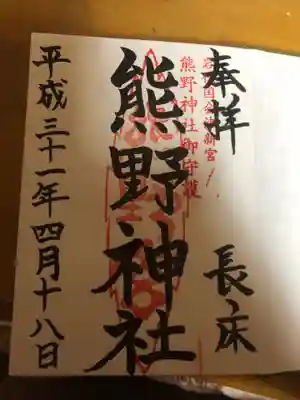 奉拝
長床
熊野神社御守護
熊野神社
平成三十一年四月十八日